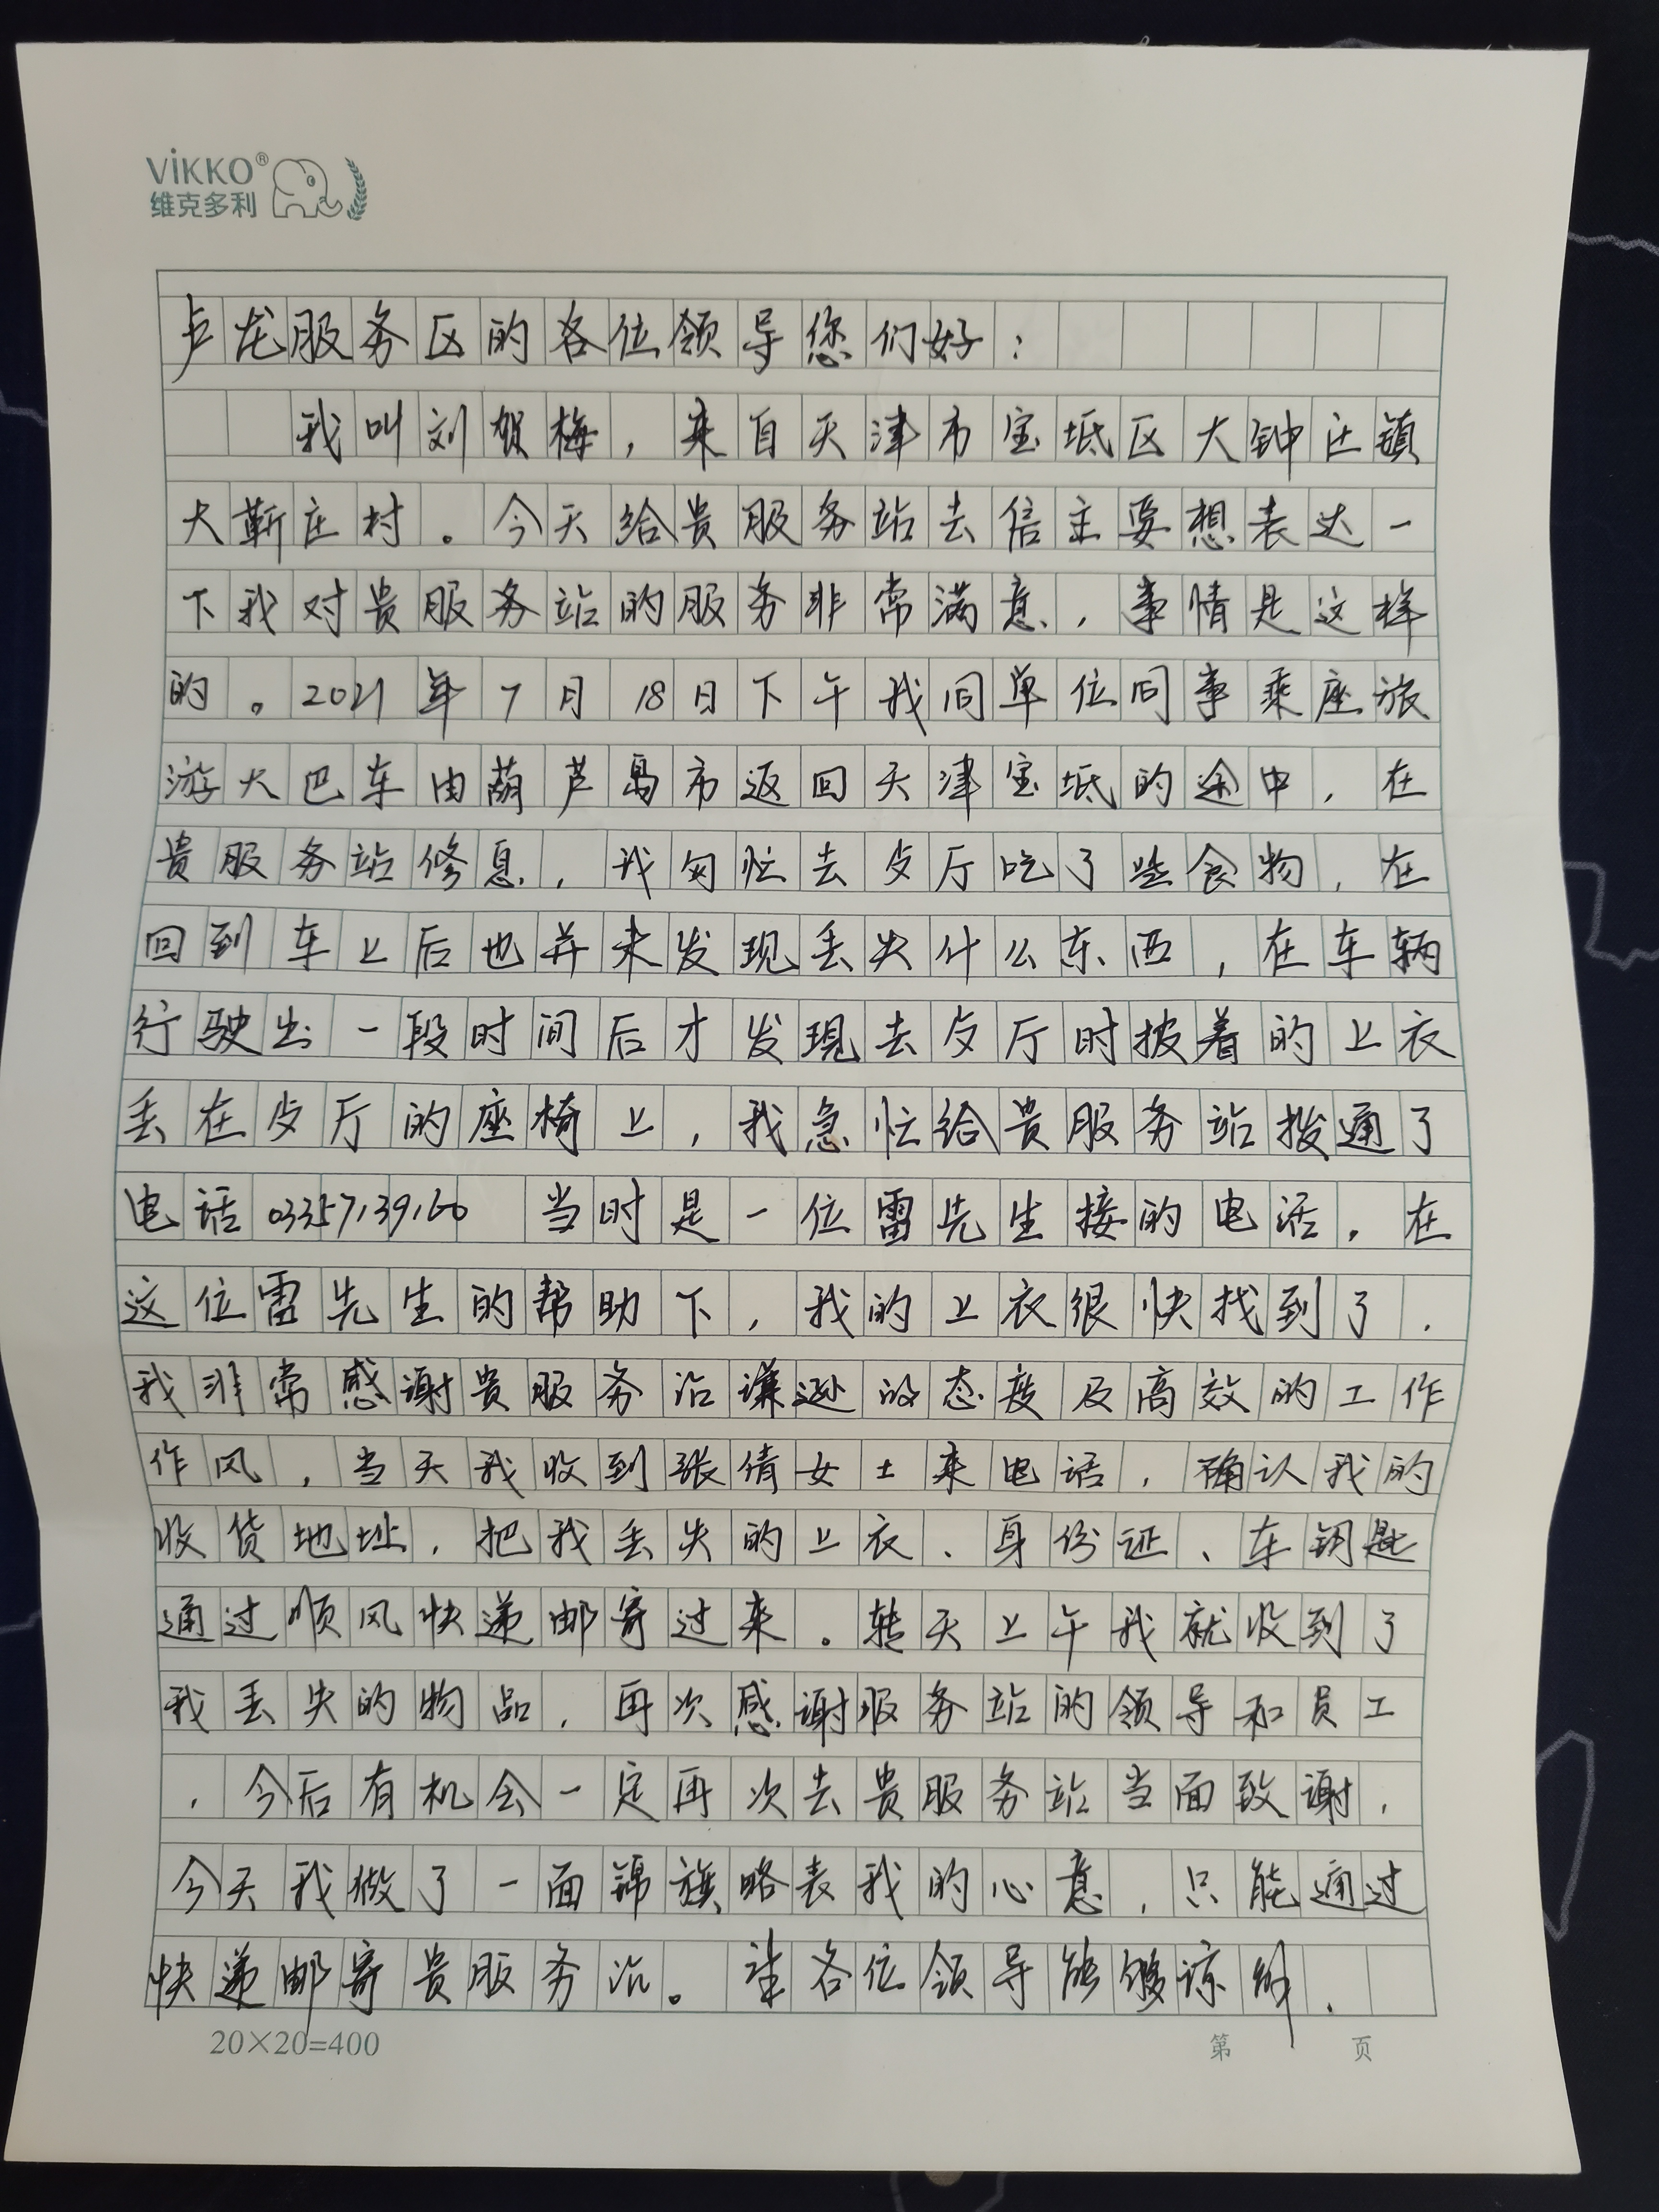 ViKKO®
维克多利
卢龙服务区的各位领导您们好：
我叫刘贺梅，来自天津市宝坻区大钟庄镇
大靳庄村。今天给贵服务站去信主要想表达一
下我对贵服务站的服务非常满意，事情是这样
的。2021年7月18日下午我同单位同事乘座旅
游大巴车由葫芦岛市返回天津宝坻的途中，在
贵服务站修息，我匆忙去歺厅吃了些食物，在
回到车上后也并未发现丢失什么东西，在车辆
行驶出一段时间后才发现去歺厅时披着的上衣
丢在歺厅的座椅上，我急忙给贵服务站拨通了
电话03357139160 当时是一位雷先生接的电话，在
这位雷先生的帮助下，我的上衣很快找到了，
我非常感谢贵服务站谦逊的态度及高效的工作
作风，当天我收到张倩女士来电话，确认我的
收货地址，把我丢失的上衣、身份证、车钥匙
通过顺风快递邮寄过来。转天上午我就收到了
我丢失的物品，再次感谢服务站的领导和员工
，今后有机会一定再次去贵服务站当面致谢，
今天我做了一面锦旗略表我的心意，只能通过
快递邮寄贵服务站。望各位领导能够谅解，
20×20=400
第 页